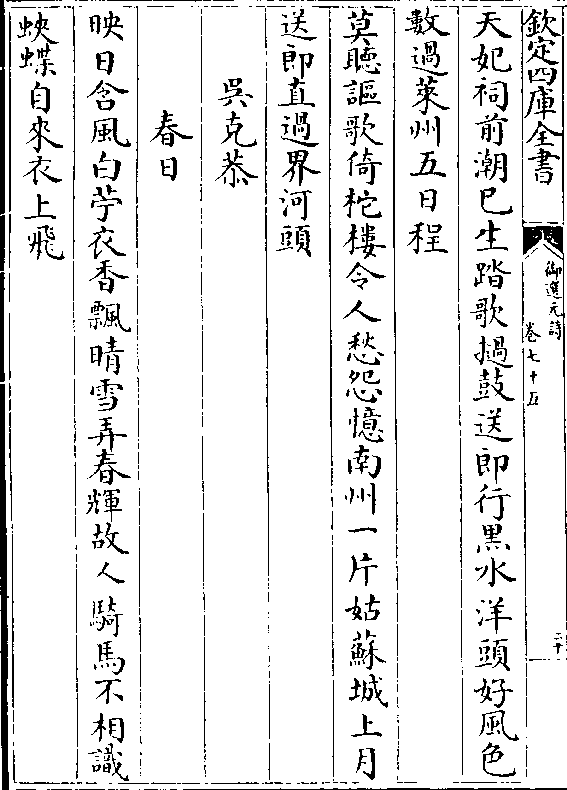 欽定四庫全書
御選元詩
卷七十五
二十
天妃祠前潮已生踏歌撾鼓送郎行黒水洋頭好風色
數過萊州五日程
莫聴謳歌倚柁樓令人愁怨憶南州一片姑蘇城上月
送郎直過界河頭
吳克恭
春日
映日含風白苧衣香飄晴雪弄春輝故人騎馬不相識
蛺蝶自來衣上飛